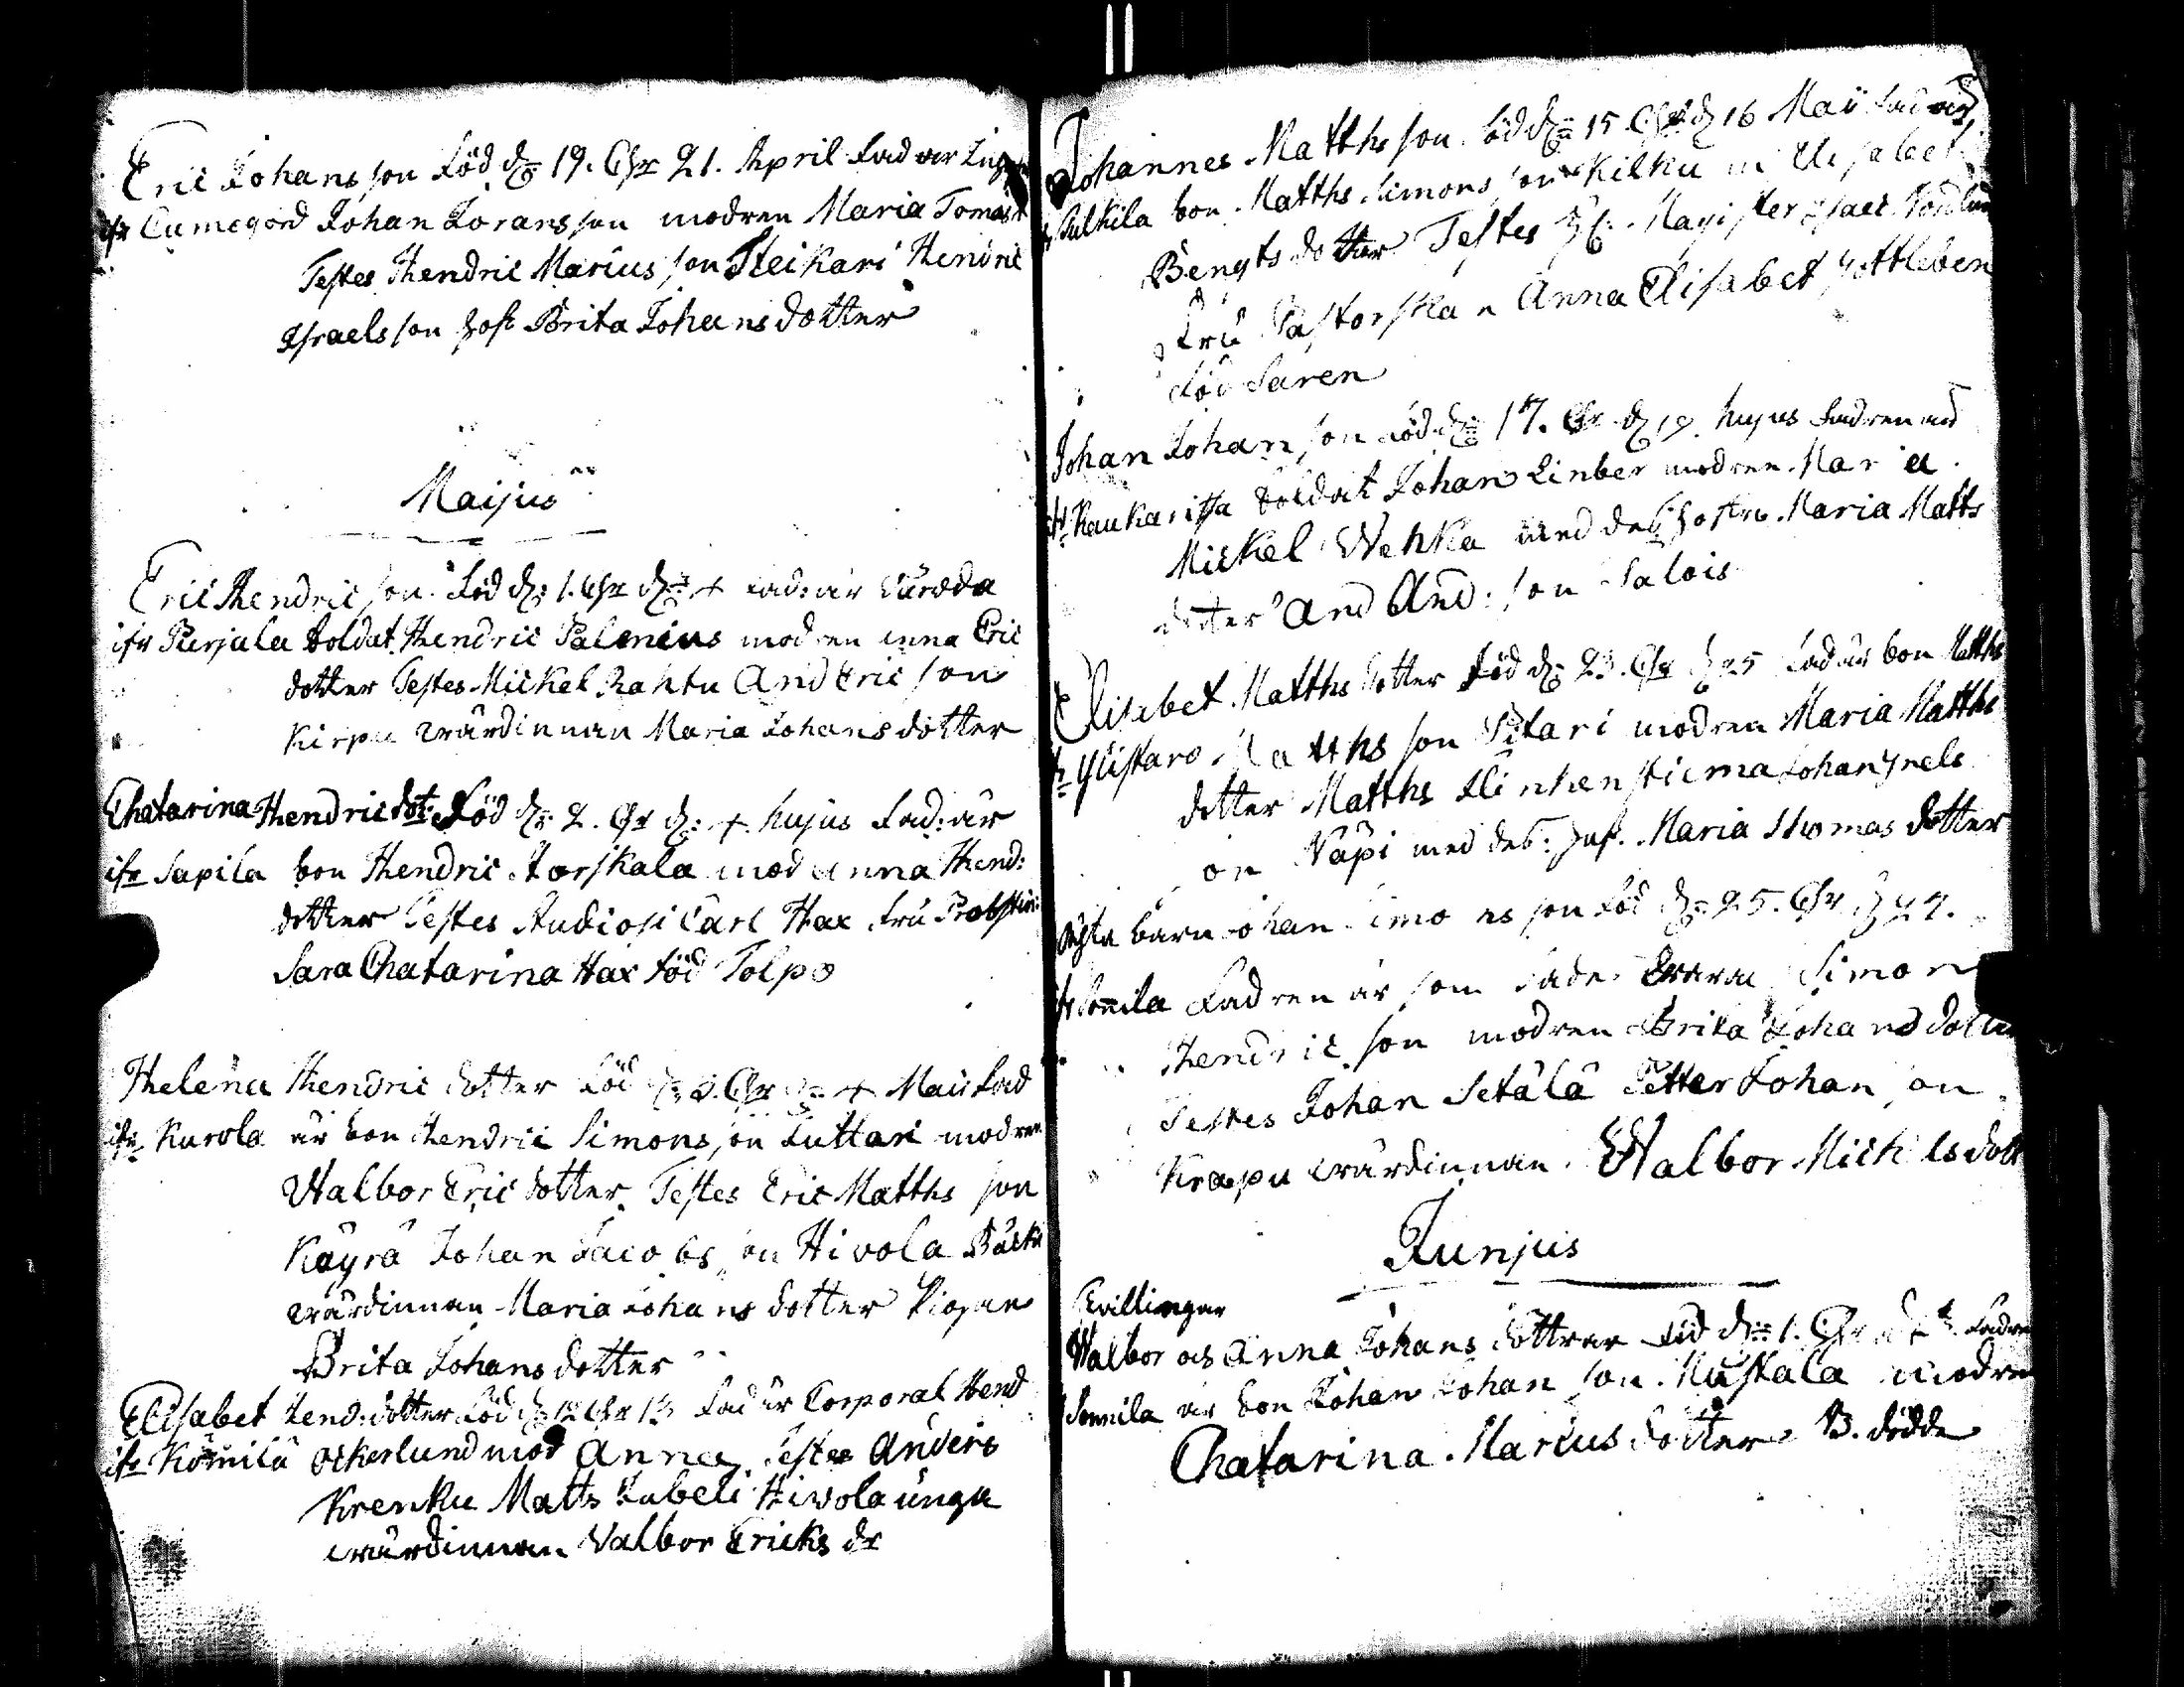 Eric Johans son Född dn 19. Chr 21. April Fad är
ifr Cumogård Johan Jorans son modren Maria Tomas
Testes Hendric Marcus son Steikari Hendric
Israels son host Brita Johans dotter
Maijus
Eric Hendric son Född d: 1. Chr d: 4 Fad: är
ifr Pierjala Soldat Hendric Palenius modren Anna Eric
dotter Testes Mickel Rahtu And Eric son
Kirpu wärdinnan Maria Johans dotter
Chatarina Hendric dot: Född d: 2. Chr d: 4. hujus Fad: är
ifr Sapila bon Hendric Korskala mod Anna Hend:
dotter Testes Studiosi Carl Hax fru Probstin:
Sara Chatarina Hax född Polpo
Helena Hendric dotter Föd d: 3. Chr d: 4 Maii Fad
ifr Kurola är bon Hendric Simons son Luttari modren
Walbor Eric dotter Testes Eric Matths son
Käyrä Johan Jacobs son Hivola
wärdinnan Maria Johans dotter Pigan
Brita Johans dotter
Elisabet Hend: dotter Föd d: 12 Chr 13 Fad är Corporal Hend
ifr Kömilä Åkerlund mod Anna Testes Anders
Krenku Matts Kubeli Hivola unga
wärdinnan Valbor Ericks dr
Johannes Matths son föd dn 15 Chr d 16 Maii Fad är
ifr Sulkila bon Matths Simons son Kilku m Elisabet
Bengts dotter Testes H: Magister Isaac
fru Pastorskan Anna Elisabet Gottleben
född Saren
Johan Johan son föd dn 17. Chr d 19. hujus Fadren är
ifr Kaukarissa Soldat Johan Linber modren Maria
Mickel Wehka med des hostru Maria Matts
dotter And And: son Salois
Elisabet Matths dotter Föd d: 23. Chr d 25 Fad är bon Matths
ifr Matths son Pitari modren Maria Matths
dotter Matths Klinkenstierna Johan
on Näpi med des: huf. Maria Thomas dotter
Ägta barn Johan Simons son Föd d: 25. Chr d 27.
ifr Sonnila Fadren är som Simon
Hendric son modren Brita Johans dotter
Testes Johan Setälä Petter Johan son
Krapu wärdinnan Walbor Michels dott
Junjus
Tvillingar
Walbor och Anna Johans döttrar Föd d: 1. Chr d 4. Fadren
Sonnila är bon Johan Johan son Mustala modren
Chatarina Marcus dotter B. dödde